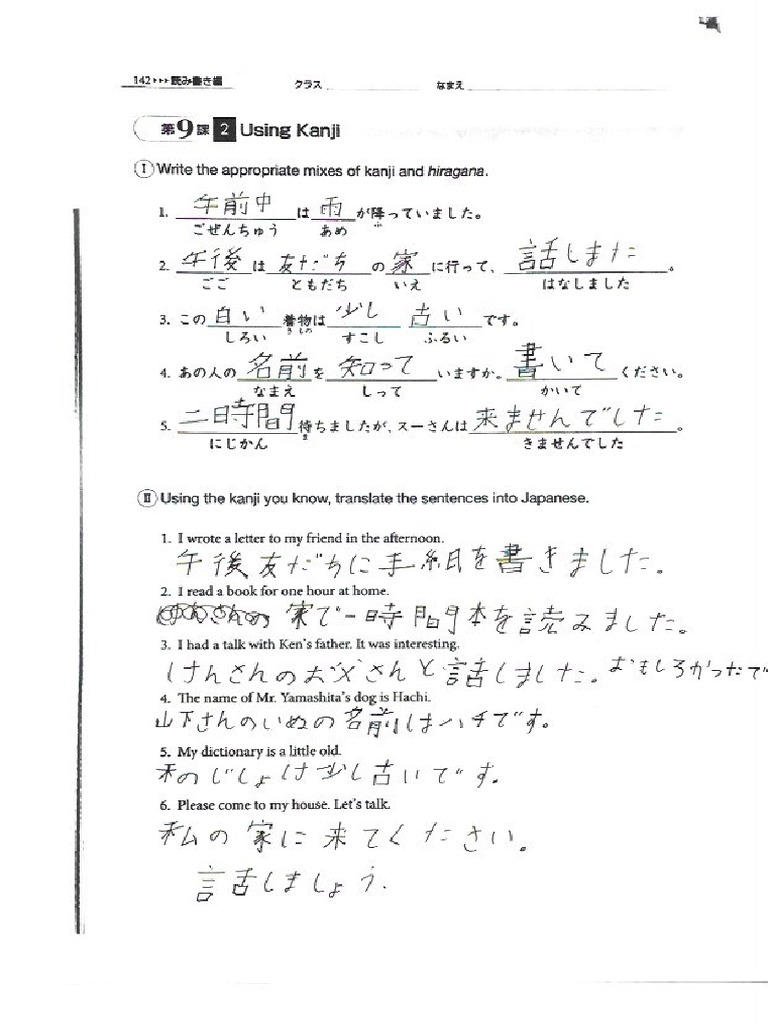 142▸▸▸読み書き編
クラス なまえ
第9課 2 Using Kanji
Ⅰ Write the appropriate mixes of kanji and hiragana.
1. 午前中 は 雨 が降っていました。
ごぜんちゅう あめ ふ
2. 午後 は 友だち の 家 に行って、 話しました 。
ごご ともだち いえ はなしました
3. この 白い 着物は 少し 古い です。
しろい きもの すこし ふるい
4. あの人の 名前 を 知って いますか。 書いて ください。
なまえ しって かいて
5. 二時間 待ちましたが、スーさんは 来ませんでした 。
にじかん ま きませんでした
Ⅱ Using the kanji you know, translate the sentences into Japanese.
1. I wrote a letter to my friend in the afternoon.
午後友だちに手紙を書きました。
2. I read a book for one hour at home.
家で一時間本を読みました。
3. I had a talk with Ken's father. It was interesting.
けんさんのお父さんと話しました。おもしろかったで
4. The name of Mr. Yamashita's dog is Hachi.
山下さんのいぬの名前はハチです。
5. My dictionary is a little old.
私のじしょは少し古いです。
6. Please come to my house. Let's talk.
私の家に来てください。
話しましょう.